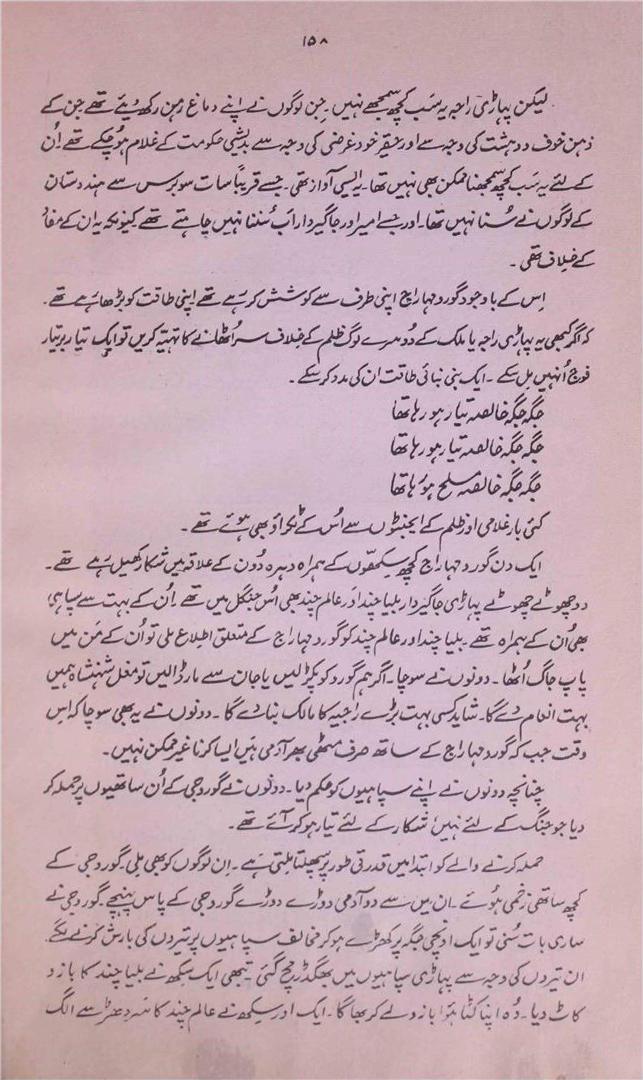 ۱۵۸
لیکن پہاڑی راجہ یہ سب کچھ سمجھے نہیں۔ جن لوگوں نے اپنے دماغ رہن رکھ دیئے تھے جن کے
ذہن خوف و دہشت کی وجہ سے اور حقیر خود غرضی کی وجہ سے بدیشی حکومت کے غلام ہو چکے تھے اُن
کے لئے یہ سب کچھ سمجھنا ممکن بھی نہیں تھا۔ یہ ایسی آواز تھی۔ جسے قریباً سات سو برس سے ہندوستان
کے لوگوں نے سُنا نہیں تھا۔ اور جسے امیر اور جاگیردار اَب سُننا نہیں چاہتے تھے کیونکہ یہ ان کے مفاد
کے خلاف تھی۔
اِس کے باوجود گورو مہاراج اپنی طرف سے کوشش کر رہے تھے اپنی طاقت کو بڑھا رہے تھے۔
کہ اگر کبھی یہ پہاڑی راجہ یا ملک کے دُوسرے لوگ ظلم کے خلاف سر اُٹھانے کا تہیّہ کریں تو ایک تیار بر تیار
فوج اُنہیں مل سکے۔ ایک بنی بنائی طاقت ان کی مدد کر سکے۔
جگہ جگہ خالصہ تیار ہو رہا تھا
جگہ جگہ خالصہ تیار ہو رہا تھا
جگہ جگہ خالصہ مسلح ہو رہا تھا
کئی بار غلامی اور ظلم کے ایجنٹوں سے اُس کے ٹکراؤ بھی ہوئے تھے۔
ایک دن گورو مہاراج کچھ سِکھوں کے ہمراہ دہرہ دُون کے علاقہ میں شکار کھیل رہے تھے۔
دو چھوٹے چھوٹے پہاڑی جاگیردار بلیا چند اور عالم چند بھی اُس جنگل میں تھے۔ اُن کے بہت سے سپاہی
بھی اُن کے ہمراہ تھے۔ بلیا چند اور عالم چند کو گورو مہاراج کے متعلق اطلاع ملی تو اُن کے مَن میں
پاپ جاگ اُٹھا۔ دونوں نے سوچا۔ اگر ہم گورو کو پکڑ لیں یا جان سے مار ڈالیں تو مغل شہنشاہ ہمیں
بہت انعام دے گا۔ شاید کسی بہت بڑے راجیہ کا مالک بنا دے گا۔ دونوں نے یہ بھی سوچا کہ اس
وقت جب کہ گورو مہاراج کے ساتھ صرف مٹھی بھر آدمی ہیں ایسا کرنا غیر ممکن نہیں۔
چنانچہ دونوں نے اپنے سپاہیوں کو حکم دیا۔ دونوں نے گورو جی کے اُن ساتھیوں پر حملہ کر
دیا جو جنگ کے لئے نہیں شکار کے لئے تیار ہو کر آئے تھے۔
حملہ کرنے والے کو ابتدا میں قدرتی طور پر سپھلتا ملتی ہے۔ اِن لوگوں کو بھی ملی۔ گورو جی کے
کچھ ساتھی زخمی ہوئے۔ ان میں سے دو آدمی دوڑے دوڑے گورو جی کے پاس پہنچے۔ گورو جی نے
ساری بات سُنی تو ایک اونچی جگہ پر کھڑے ہو کر مخالف سپاہیوں پر تیروں کی بارش کرنے لگے۔
ان تیروں کی وجہ سے پہاڑی سپاہیوں میں بھگدڑ مچ گئی۔ تبھی ایک سِکھ نے بلیا چند کا بازو
کاٹ دیا۔ وُہ اپنا کٹا ہوا بازو لے کر بھاگا۔ ایک اور سِکھ نے عالم چند کا سَر دھڑ سے الگ